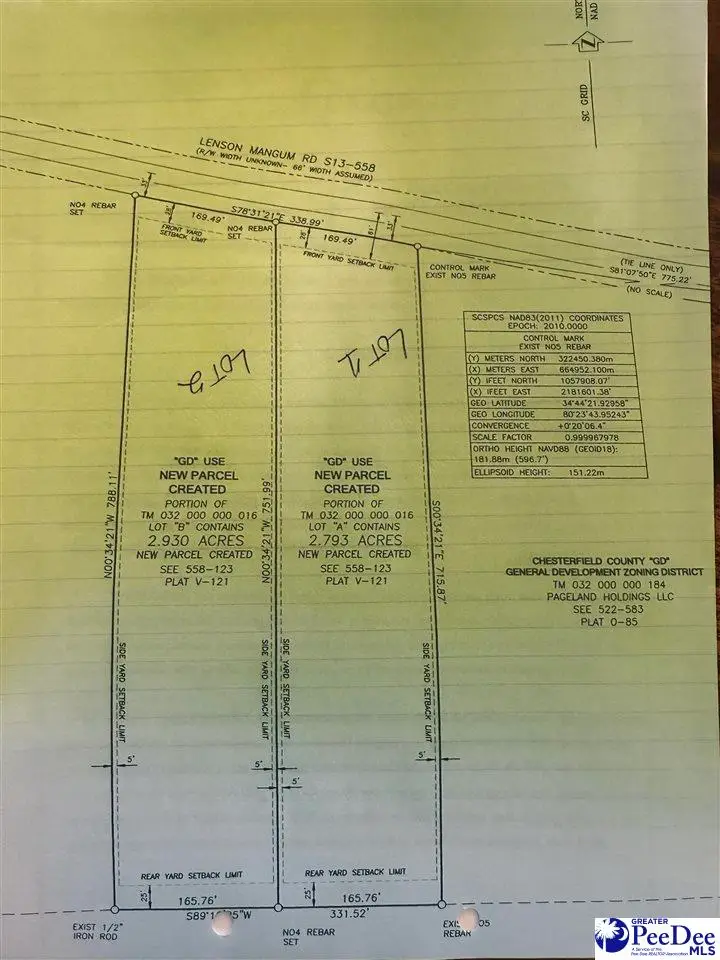 NAD
SC GRID
LENSON MANGUM RD S13-558
(R/W WIDTH UNKNOWN- 66' WIDTH ASSUMED)
33'
NO4 REBAR
SET
28'
169.49'
S78°31'21"E 338.99'
FRONT YARD
SETBACK LIMIT
NO4 REBAR
SET
28'
169.49'
61'
33'
FRONT YARD SETBACK LIMIT
CONTROL MARK
EXIST NO5 REBAR
(TIE LINE ONLY)
S81°07'50"E 775.22'
(NO SCALE)
SCSPCS NAD83(2011) COORDINATES
EPOCH: 2010.0000
CONTROL MARK
EXIST NO5 REBAR
(Y) METERS NORTH 322450.380m
(X) METERS EAST 664952.100m
(Y) IFEET NORTH 1057908.07'
(X) IFEET EAST 2181601.38'
GEO LATITUDE 34°44'21.92958"
GEO LONGITUDE 80°23'43.95243"
CONVERGENCE +0°20'06.4"
SCALE FACTOR 0.999967978
ORTHO HEIGHT NAVD88 (GEOID18):
181.88m (596.7')
ELLIPSOID HEIGHT: 151.22m
LOT 2
LOT 1
"GD" USE
NEW PARCEL
CREATED
PORTION OF
TM 032 000 000 016
LOT "B" CONTAINS
2.930 ACRES
NEW PARCEL CREATED
SEE 558-123
PLAT V-121
"GD" USE
NEW PARCEL
CREATED
PORTION OF
TM 032 000 000 016
LOT "A" CONTAINS
2.793 ACRES
NEW PARCEL CREATED
SEE 558-123
PLAT V-121
N00°34'21"W 788.11'
N00°34'21"W 751.99'
S00°34'21"E 715.87'
CHESTERFIELD COUNTY "GD"
GENERAL DEVELOPMENT ZONING DISTRICT
TM 032 000 000 184
PAGELAND HOLDINGS LLC
SEE 522-583
PLAT O-85
SIDE YARD SETBACK LIMIT
SIDE YARD SETBACK LIMIT
SIDE YARD SETBACK LIMIT
SIDE YARD SETBACK LIMIT
5'
5'
5'
5'
REAR YARD SETBACK LIMIT
REAR YARD SETBACK LIMIT
25'
165.76'
25'
165.76'
331.52'
EXIST 1/2"
IRON ROD
NO4 REBAR
SET
REBAR
GREATER
PeeDee
MLS
A Service of the
Pee Dee REALTOR Association